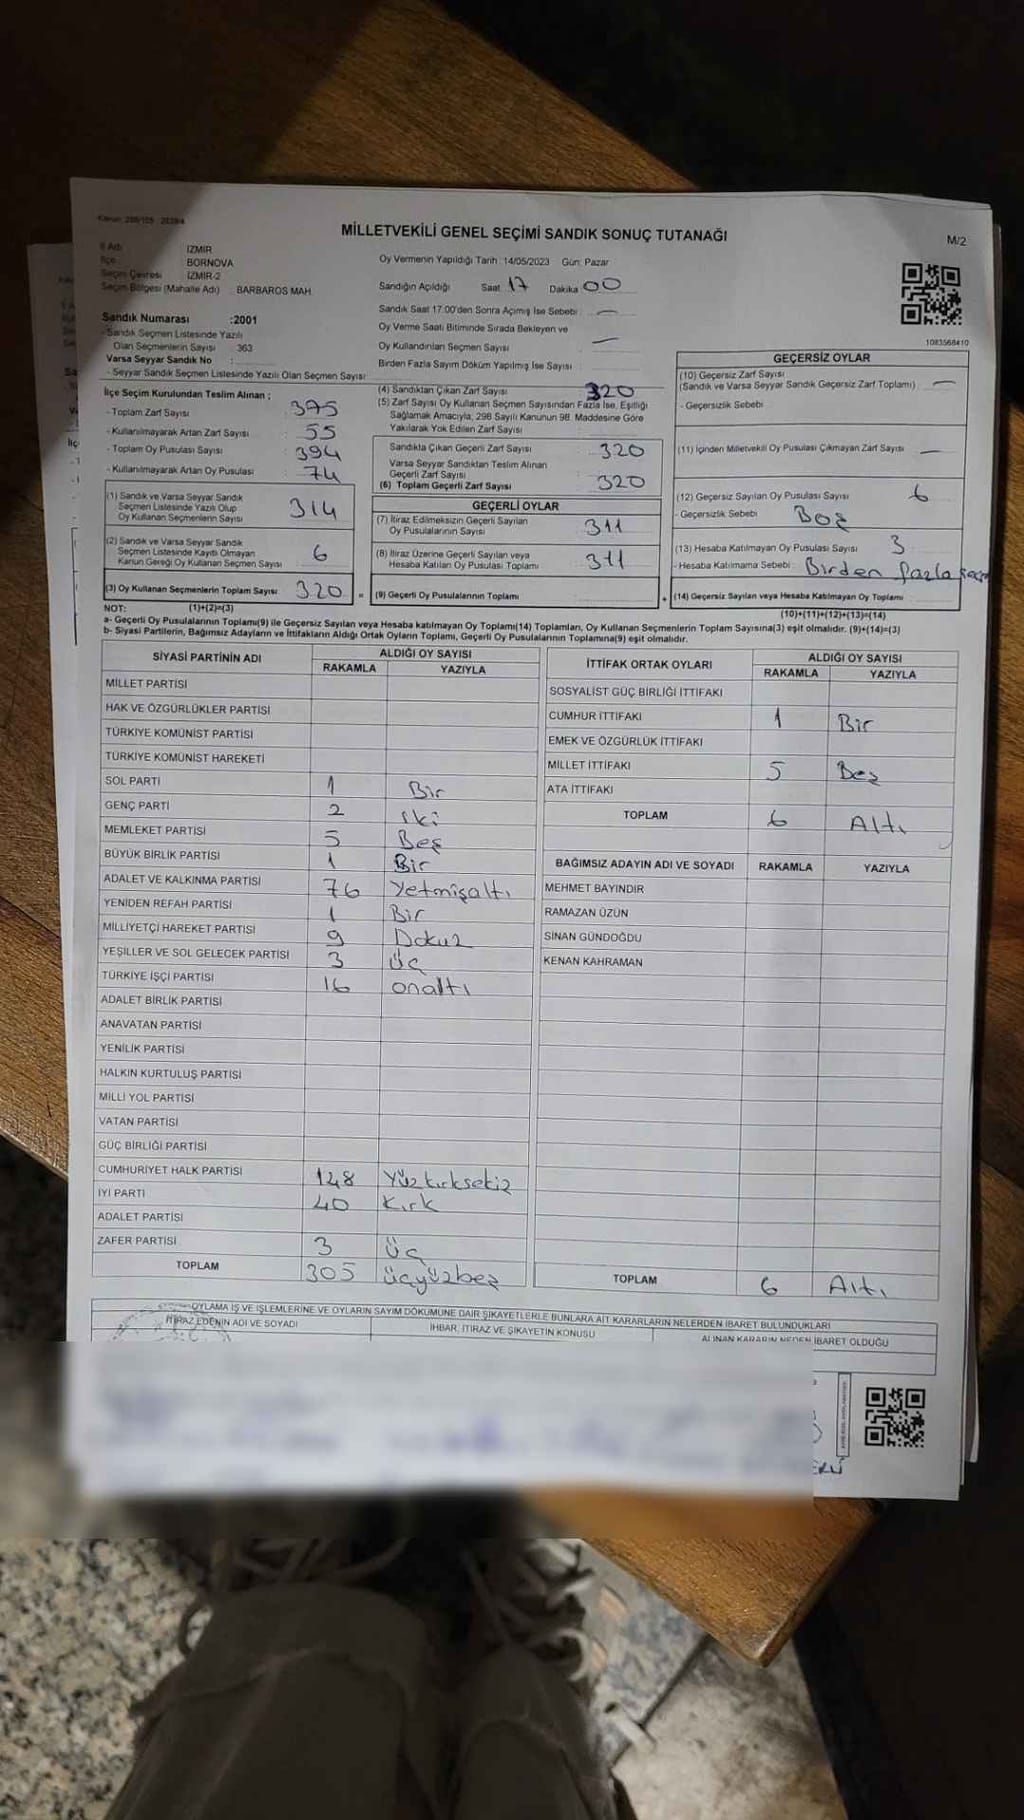 MİLLETVEKİLİ GENEL SEÇİMİ SANDIK SONUÇ TUTANAĞI
M/2
İl Adı İZMİR
İlçe BORNOVA
Seçim Çevresi İZMİR-2
Seçim Bölgesi (Mahalle Adı) : BARBAROS MAH.
Oy Vermenin Yapıldığı Tarih : 14/05/2023 Gün: Pazar
Sandığın Açıldığı Saat 17 Dakika 00
Sandık Saat 17.00'den Sonra Açımış İse Sebebi : —
Oy Verme Saati Bitiminde Sırada Bekleyen ve
Oy Kullandırılan Seçmen Sayısı —
Birden Fazla Sayım Döküm Yapılmış İse Sayısı :
1083568410
Sandık Numarası :2001
- Sandık Seçmen Listesinde Yazılı
Olan Seçmenlerin Sayısı : 363
Varsa Seyyar Sandık No :
- Seyyar Sandık Seçmen Listesinde Yazılı Olan Seçmen Sayısı
İlçe Seçim Kurulundan Teslim Alınan ;
- Toplam Zarf Sayısı : 375
- Kullanılmayarak Artan Zarf Sayısı : 55
- Toplam Oy Pusulası Sayısı : 394
- Kullanılmayarak Artan Oy Pusulası : 74
(1) Sandık ve Varsa Seyyar Sandık
Seçmen Listesinde Yazılı Olup
Oy Kullanan Seçmenlerin Sayısı : 314
(2) Sandık ve Varsa Seyyar Sandık
Seçmen Listesinde Kayıtlı Olmayan
Kanun Gereği Oy Kullanan Seçmen Sayısı : 6
(3) Oy Kullanan Seçmenlerin Toplam Sayısı : 320 =
(4) Sandıktan Çıkan Zarf Sayısı 320
(5) Zarf Sayısı Oy Kullanan Seçmen Sayısından Fazla İse, Eşitliği
Sağlamak Amacıyla; 298 Sayılı Kanunun 98. Maddesine Göre
Yakılarak Yok Edilen Zarf Sayısı :
Sandıkta Çıkan Geçerli Zarf Sayısı : 320
Varsa Seyyar Sandıktan Teslim Alınan
Geçerli Zarf Sayısı
(6) Toplam Geçerli Zarf Sayısı : 320
GEÇERLİ OYLAR
(7) İtiraz Edilmeksizin Geçerli Sayılan
Oy Pusulalarının Sayısı : 311
(8) İtiraz Üzerine Geçerli Sayılan veya
Hesaba Katılan Oy Pusulası Toplamı : 311
(9) Geçerli Oy Pusulalarının Toplamı : +
GEÇERSİZ OYLAR
(10) Geçersiz Zarf Sayısı
(Sandık ve Varsa Seyyar Sandık Geçersiz Zarf Toplamı) : —
- Geçersizlik Sebebi
(11) İçinden Milletvekili Oy Pusulası Çıkmayan Zarf Sayısı : —
(12) Geçersiz Sayılan Oy Pusulası Sayısı : 6
- Geçersizlik Sebebi : Boş
(13) Hesaba Katılmayan Oy Pusulası Sayısı 3
- Hesaba Katılmama Sebebi : Birden fazla
(14) Geçersiz Sayılan veya Hesaba Katılmayan Oy Toplamı :
NOT: (1)+(2)=(3)
(10)+(11)+(12)+(13)=(14)
a- Geçerli Oy Pusulalarının Toplamı(9) ile Geçersiz Sayılan veya Hesaba katılmayan Oy Toplamı(14) Toplamları, Oy Kullanan Seçmenlerin Toplam Sayısına(3) eşit olmalıdır. (9)+(14)=(3)
b- Siyasi Partilerin, Bağımsız Adayların ve İttifakların Aldığı Ortak Oyların Toplamı, Geçerli Oy Pusulalarının Toplamına(9) eşit olmalıdır.
SİYASİ PARTİNİN ADI ALDIĞI OY SAYISI
RAKAMLA YAZIYLA
MİLLET PARTİSİ
HAK VE ÖZGÜRLÜKLER PARTİSİ
TÜRKİYE KOMÜNİST PARTİSİ
TÜRKİYE KOMÜNİST HAREKETİ
SOL PARTİ 1 Bir
GENÇ PARTİ 2 İki
MEMLEKET PARTİSİ 5 Beş
BÜYÜK BİRLİK PARTİSİ 1 Bir
ADALET VE KALKINMA PARTİSİ 76 Yetmişaltı
YENİDEN REFAH PARTİSİ 1 Bir
MİLLİYETÇİ HAREKET PARTİSİ 9 Dokuz
YEŞİLLER VE SOL GELECEK PARTİSİ 3 Üç
TÜRKİYE İŞÇİ PARTİSİ 16 onaltı
ADALET BİRLİK PARTİSİ
ANAVATAN PARTİSİ
YENİLİK PARTİSİ
HALKIN KURTULUŞ PARTİSİ
MİLLİ YOL PARTİSİ
VATAN PARTİSİ
GÜÇ BİRLİĞİ PARTİSİ
CUMHURİYET HALK PARTİSİ 148 Yüzkırksekiz
İYİ PARTİ 40 Kırk
ADALET PARTİSİ
ZAFER PARTİSİ 3 Üç
TOPLAM 305 üçyüzbeş
İTTİFAK ORTAK OYLARI ALDIĞI OY SAYISI
RAKAMLA YAZIYLA
SOSYALİST GÜÇ BİRLİĞİ İTTİFAKI
CUMHUR İTTİFAKI 1 Bir
EMEK VE ÖZGÜRLÜK İTTİFAKI
MİLLET İTTİFAKI 5 Beş
ATA İTTİFAKI
TOPLAM 6 Altı
BAĞIMSIZ ADAYIN ADI VE SOYADI RAKAMLA YAZIYLA
MEHMET BAYINDIR
RAMAZAN ÜZÜN
SİNAN GÜNDOĞDU
KENAN KAHRAMAN
TOPLAM 6 Altı
OYLAMA İŞ VE İŞLEMLERİNE VE OYLARIN SAYIM DÖKÜMÜNE DAİR ŞİKAYETLERLE BUNLARA AİT KARARLARIN NELERDEN İBARET BULUNDUKLARI
İTİRAZ EDENİN ADI VE SOYADI İHBAR, İTİRAZ VE ŞİKAYETİN KONUSU ALINAN KARARIN NEDEN İBARET OLDUĞU